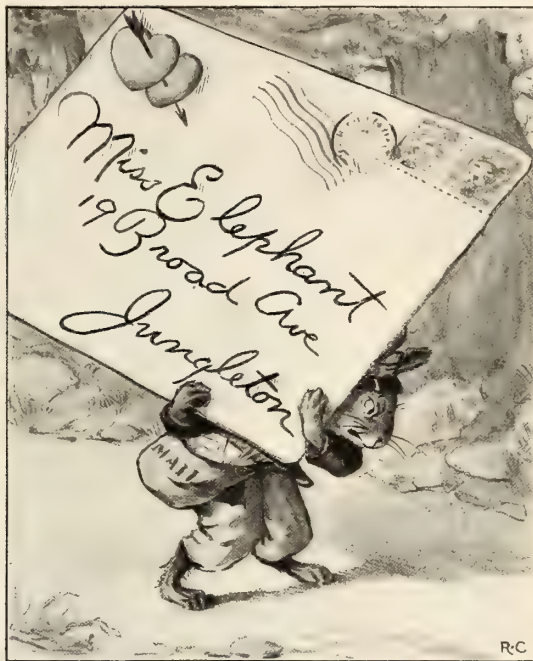 Miss Elephant
19 Broad Ave
Jungleton
MAIL
R·C